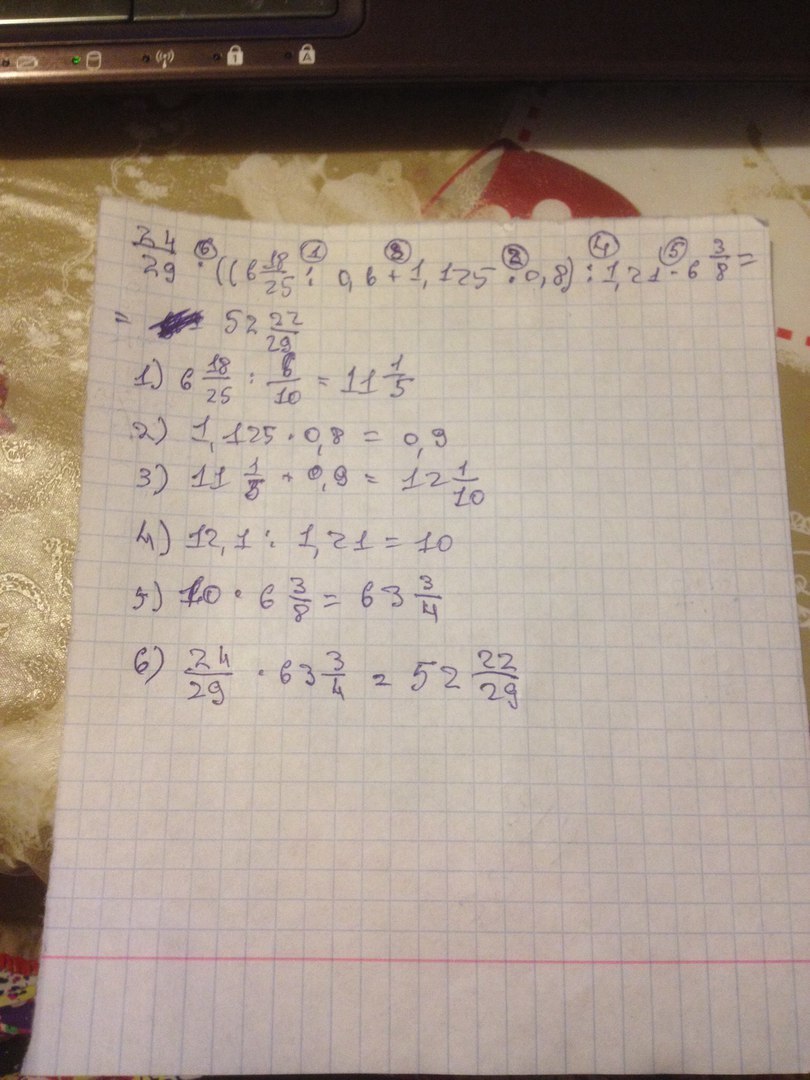 24/29 · ((6 18/25 : 0,6 + 1,125 · 0,8) : 1,21 · 6 3/8 =
= 52 22/29
1) 6 18/25 : 6/10 = 11 1/5
2) 1,125 · 0,8 = 0,9
3) 11 1/5 + 0,9 = 12 1/10
4) 12,1 : 1,21 = 10
5) 10 · 6 3/8 = 63 3/4
6) 24/29 · 63 3/4 = 52 22/29